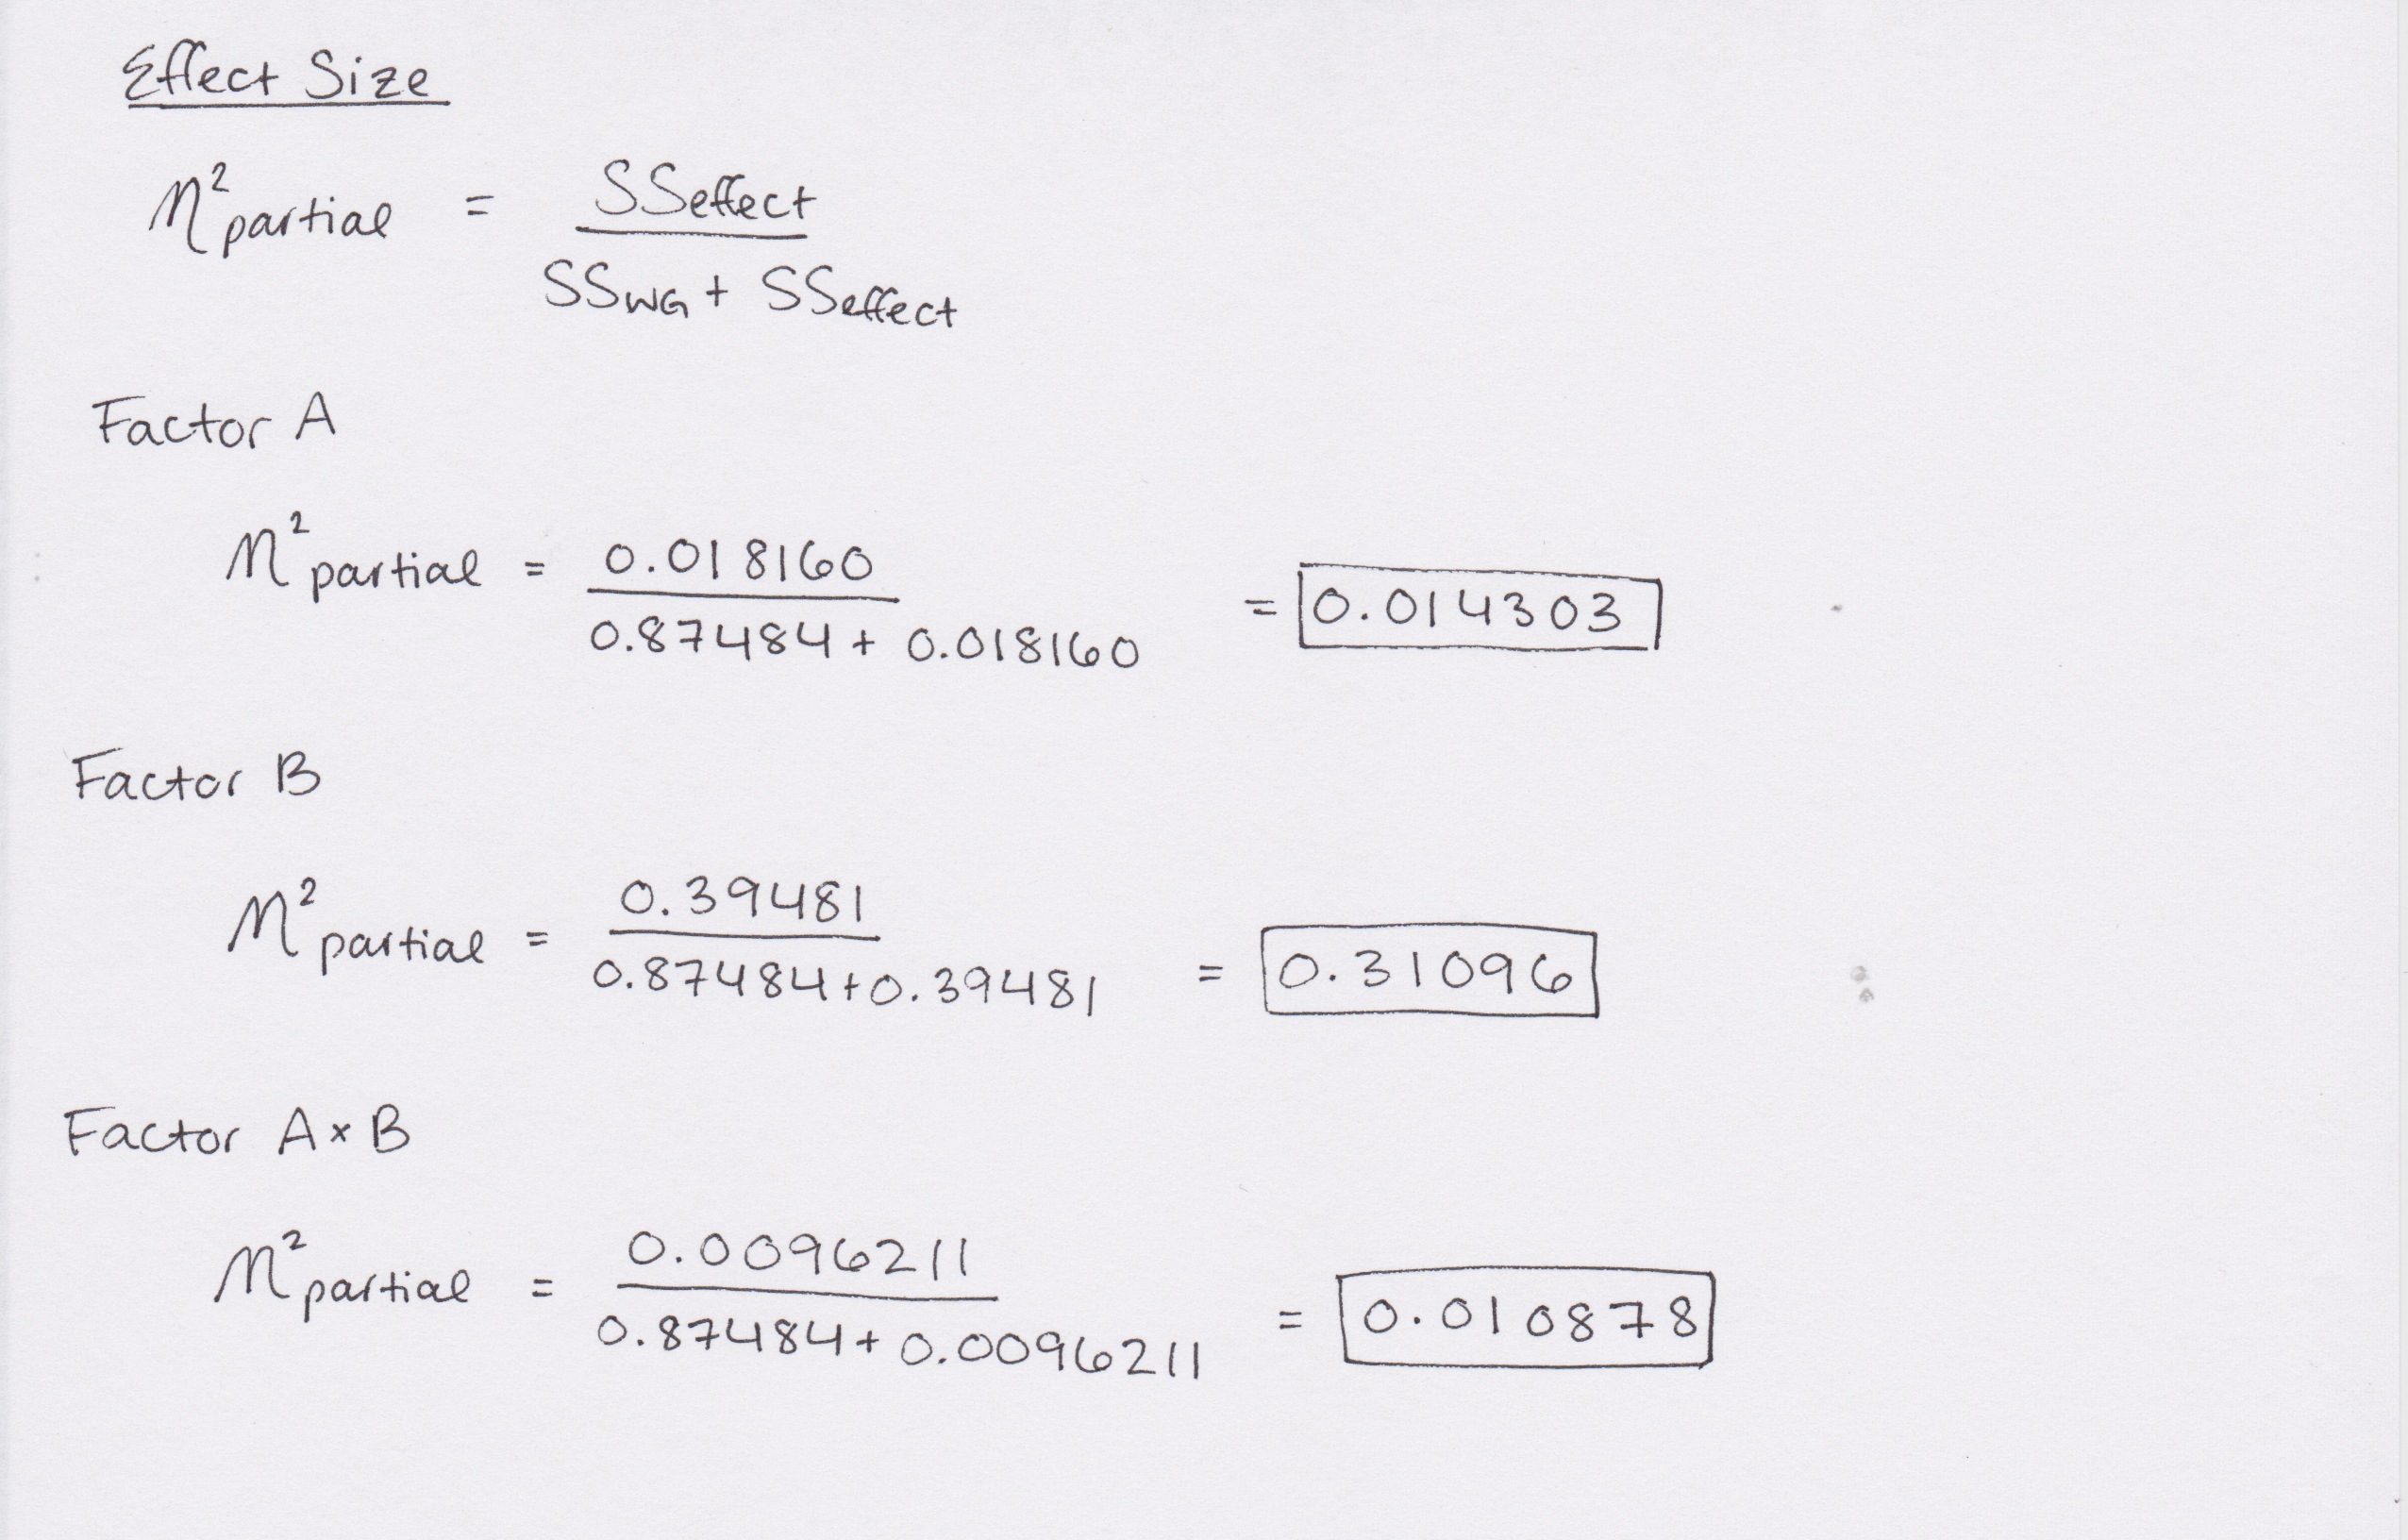 Effect Size
η²partial = SSeffect / SSWG + SSeffect
Factor A
η²partial = 0.018160 / 0.87484 + 0.018160 = 0.014303
Factor B
η²partial = 0.39481 / 0.87484 + 0.39481 = 0.31096
Factor A × B
η²partial = 0.0096211 / 0.87484 + 0.0096211 = 0.010878